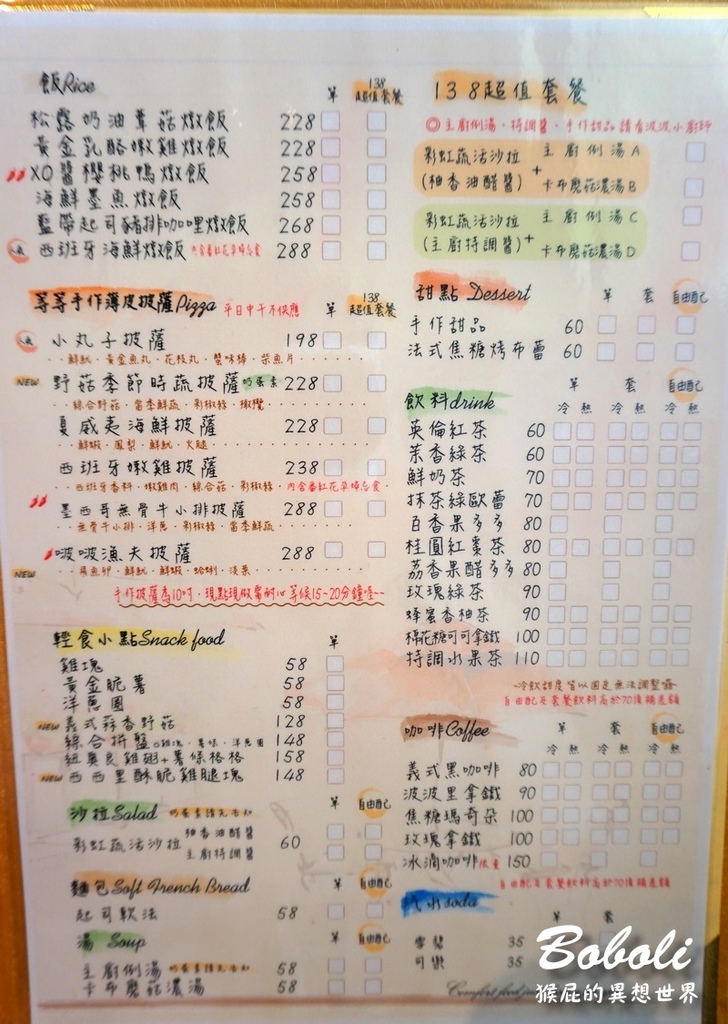 飯Rice 單 138超值套餐
松露奶油蕈菇燉飯 228
黃金乳酪嫩雞燉飯 228
XO醬櫻桃鴨燉飯 258
海鮮墨魚燉飯 258
藍帶起司豬排咖哩燉飯 268
西班牙海鮮燉飯 內含番紅花孕婦忌食 288
等等手作薄皮披薩Pizza 平日中午不供應 單 138超值套餐
小丸子披薩 198
‧‧鮮魷‧黃金魚丸‧花枝丸‧蟹味棒‧柴魚片‧‧‧‧‧‧
NEW 野菇季節時蔬披薩 奶蛋素 228
‧‧綜合野菇‧當季鮮蔬‧彩椒絲‧橄欖‧‧‧‧‧‧
夏威夷海鮮披薩 228
‧‧鮮蝦‧鳳梨‧鮮魷‧火腿‧‧‧‧‧‧
西班牙嫩雞披薩 238
‧‧西班牙香料‧嫩雞肉‧綜合菇‧彩椒絲‧內含番紅花孕婦忌食‧
墨西哥無骨牛小排披薩 288
‧‧無骨牛小排‧洋蔥‧彩椒絲‧當季鮮蔬‧‧‧‧‧‧
啵啵漁夫披薩 288
NEW ‧‧飛魚卵‧鮮魷‧鮮蝦‧蛤蜊‧淡菜‧‧‧‧‧‧
手作披薩為10吋‧現點現做需耐心等候15~20分鐘喔~~
輕食小點Snack food 單
雞塊 58
黃金脆薯 58
洋蔥圈 58
NEW 義式蒜香野菇 128
綜合拼盤。雞塊‧薯條‧洋蔥圈 148
紐奧良雞翅+薯條格格 158
NEW 西西里酥脆雞腿塊 148
沙拉Salad 奶蛋素請先告知 單 自由配
彩虹蔬活沙拉 柚香油醋醬 主廚特調醬 60
麵包Soft French Bread 單 自由配
起司軟法 58
湯 Soup 單 自由配
主廚例湯 奶蛋素請先告知 58
卡布蘑菇濃湯 58
138超值套餐
◎主廚例湯、特調醬、手作甜品請看波波小廚師
彩虹蔬活沙拉(柚香油醋醬) + 主廚例湯A
卡布蘑菇濃湯B
彩虹蔬活沙拉(主廚特調醬) + 主廚例湯C
卡布蘑菇濃湯D
甜點 Dessert 單 套 自由配
手作甜品 60
法式焦糖烤布蕾 60
飲料drink 單 套 自由配
冷 熱 冷 熱 冷 熱
英倫紅茶 60
茉香綠茶 60
鮮奶茶 70
抹茶綠歐蕾 70
百香果多多 80
桂圓紅棗茶 80
荔香果醋多多 80
玫瑰綠茶 90
蜂蜜香柚茶 90
棉花糖可可拿鐵 100
特調水果茶 110
~冷飲甜度皆以固定無法調整喔
自由配及套餐飲料高於70須補差額
咖啡Coffee 單 套 自由配
冷 熱 冷 熱 冷 熱
義式黑咖啡 80
波波里拿鐵 90
焦糖瑪奇朵 100
玫瑰拿鐵 100
冰滴咖啡 限量 150
自由配及套餐飲料高於70須補差額
汽水soda 單 套
雪碧 35
可樂 35
Boboli
猴屁的異想世界